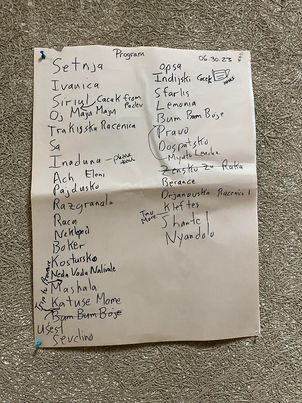 Program
06.30.23
Setnja
Ivanica
Siriul Cacak from Padev
Oj Maya Maya
Trakijska Racenica
Sa
Induna
Ach Eleni
Pajdusko
Razgranala
Raca
Boker
Kostursko
Neda Voda Nalivala
Mashala
Katuse Mome
Bum Bum Boje
Usest
Sevdino
opsa
Indijski Cacek
Sfarlis
Lemonia
Bum Bum Boje
Pravo
Dospatsko
Zensko Za Raka
Berance
Drjanovska Racenica 1
Kleftes
Shantel
Nyandolo